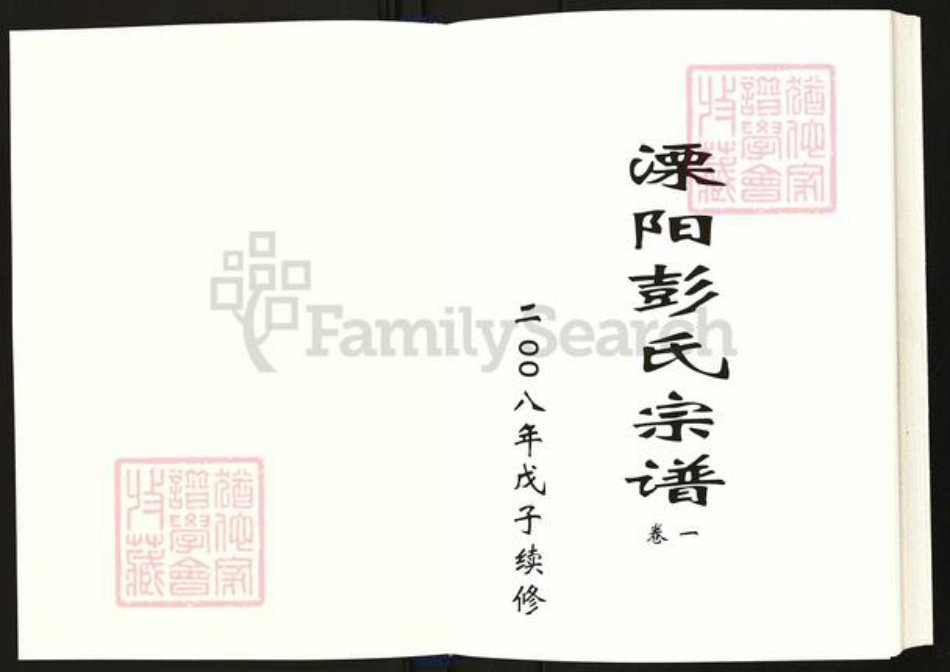 溧阳彭氏宗谱
卷一
二〇〇八年戊子续修
猶他家譜學會收藏
FamilySearch
猶他家譜學會收藏